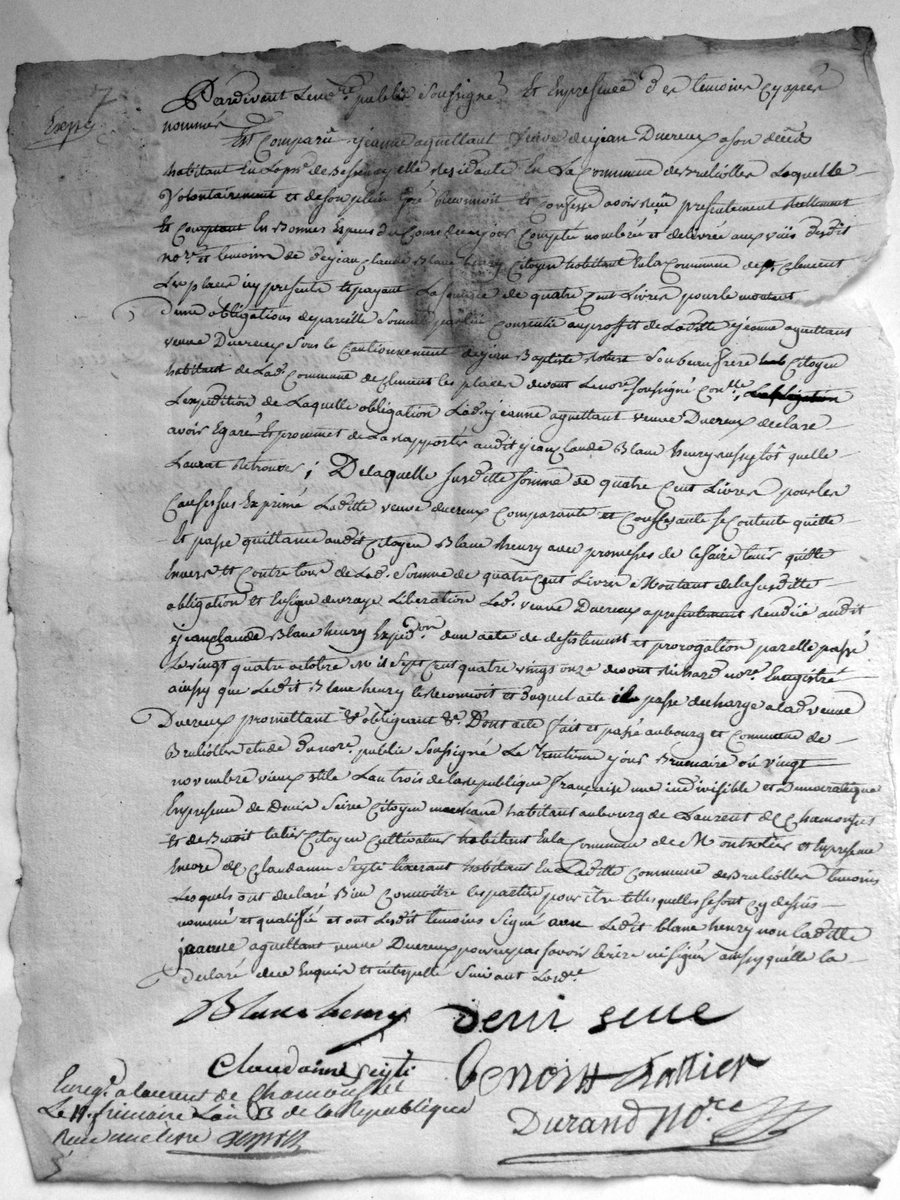 Expé
Pardevant Le no.re public soussigné Et En presence des temoins Cy après
nommés
Est Comparu jeanne aguettant veuve de jean Ducreux a son deced
habitant En La p.sse de Bessenay elle residante En La Commune de Bruliolles Laquelle
volontairement et de son plein gré reconnoit et Confesse avoir reçu presentement reellement
et Comptant En Bonnes Especes du Cours de ce jour Comptée nombrée et delivrée aux vüës dudit
no.re et temoins de jean Claude Blanc henry Citoyen habitant En La Commune de Clement
Les places icy present et payant La somme de quatre Cent Livres pour le montant
d'une obligations de pareille Somme par lui Consentie au proffit de Laditte jeanne aguettant
veuve Ducreux Sous le Cautionnement de jean Baptiste Son beau frere Citoyen
habitant de Lad. Commune de Clement les places devant Le no.re soussigné
L'expedition de Laquelle obligation Lad. jeanne aguettant veuve Ducreux declare
avoir Egaré Et promet de La rapporter audit jean Claude Blanc henry aussytôt quelle
Laurat Retrouvée ; De laquelle susditte somme de quatre Cent Livres pour les
Causes sus Exprimé Laditte veuve ducreux Comparante et Confessante se Contente quitte
Et passe quittance audit Citoyen Blanc henry avec promesses de le faire tenir quitte
Envers Et Contre tous de Lad. Somme de quatre Cent Livres Montant de la susditte
obligation Et En signe de vraye Liberation Lad. veuve Ducreux a presentement Rendüe audit
jean Claude Blanc henry Expéd.on d'un acte de desistement et prorogation par elle passé
Le vingt quatre octobre Mil Sept Cent quatre vingt onze devant Richard no.re Enregistré
ainssy que Ledit Blanc henry le reconnoit et Duquel acte il passe decharge a lad. veuve
Ducreux promettant & obligeant &. Dont acte fait et passé au bourg et Commune de
Bruliolles etude du no.re public Soussigné Le trentieme jour Brumaire ou vingt
novembre vieux stile L'an trois de la republique françaisse une indivisible et Democratique
En presence de Denis Seive Citoyen habitant au bourg de Laurent de Chamousset
Et de Benoit Citoyen Cultivateur habitant En La Commune de Montrotier et En presence
Encore de Claudanne Seyti habitant En Laditte Commune de Bruliolles temoins
Lesquels ont declaré Bien Connoitre les parties pour être telles quelles se sont cy dessus
nommé et qualifié et ont Lesdit temoins Signé avec Ledit blanc henry non Laditte
jeanne aguettant veuve Ducreux pour ne pas savoir Ecrire ni signer ainssy quelle la
declaré de ce Enquise Et interpellé Suivant Lord.ce
Blanc henry Deni seive
Claudanne Seyti Benoitt Rattier
Enreg. a laurent de Chamousset
Le 11 frimaire L'an 3 de la Republique
Reçu une livre
Durand No.re